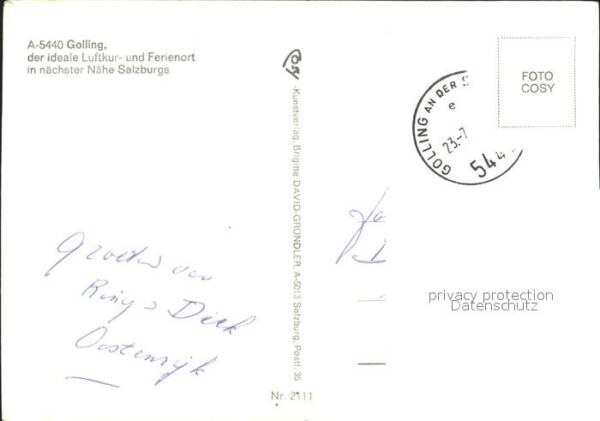 A-5440 Golling,
der ideale Luftkur- und Ferienort
in nächster Nähe Salzburgs
Groeten van
Riny &
Dick
Oostenrijk
Kunstverlag, Brigitte DAVID-GRÜNDLER, A-5013 Salzburg, Postf. 35
Nr. 2111
GOLLING AN DER S
e
23.-7
544
FOTO
COSY
privacy protection
Datenschutz